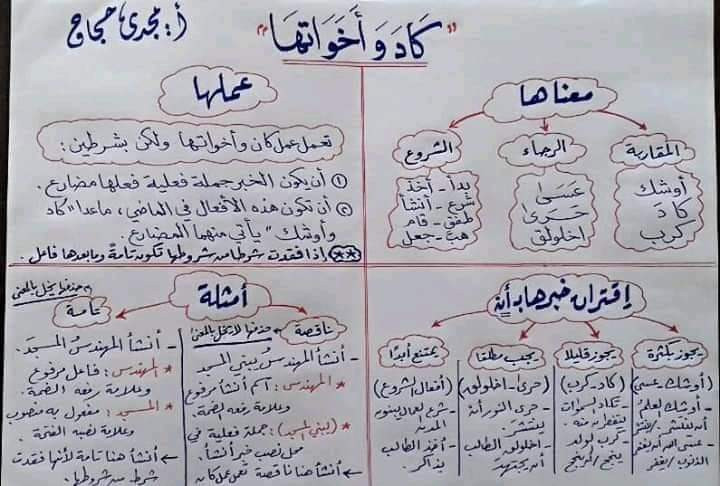 أ/ مجدى حجاج
"كَادَ وَأَخَوَاتهَا"
معناها
المقاربة
أوشك
كادَ
كرب
الرجاء
عَسَى
حَرَى
اخلولق
الشروع
بدأ - أخذ
شرع - أنشأ
طفق - قام
هبَّ - جعل
عملها
تعمل عمل كان وأخواتها ولكن بشرطين:
① أن يكون الخبر جملة فعلية فعلها مضارع.
② أن تكون هذه الأفعال في الماضي، ماعدا "كاد
وأوشك" يأتي منهما المضارع.
** إذا فقدت شرطا من شروطها تكون تامة وما بعدها فاعل.
إقتران خبرها بـ أن
يجوز بكثرة
(أوشك - عسى)
- أوشك العلم
أن ينتشر / ينتشر
- عسى الله أن يغفر
الذنوب / يغفر
يجوز قليلا
(كاد - كرب)
- تكاد السموات
يتفطرن منه.
- كرب الولد
ينجح / أن ينجح
يجب مطلقا
(حرى - اخلولق)
- حرى النور أن
ينتشر.
- اخلولق الطالب
أن يجتهد
يمتنع أبدًا
(أفعال الشروع)
- شرع العمال يبنون
المدن.
- أخذ الطالب
يذاكر.
أمثلة
ناقصة
حذفها لا يخل بالمعنى
- أنشأ المهندسُ يبني المسجد
* المهندس: اسم أنشأ مرفوع
وعلامة رفعه الضمة.
* (يبني المسجد): جملة فعلية في
محل نصب خبر أنشأ.
← أنشأ هنا ناقصة تعمل عمل كان
تامة
حذفها يخل بالمعنى
- أنشأ المهندسُ المسجدَ.
* المهندس: فاعل مرفوع
وعلامة رفعه الضمة.
* المسجد: مفعول به منصوب
وعلامة نصبه الفتحة.
← أنشأ هنا تامة لأنها فقدت
شرط من شروطها.